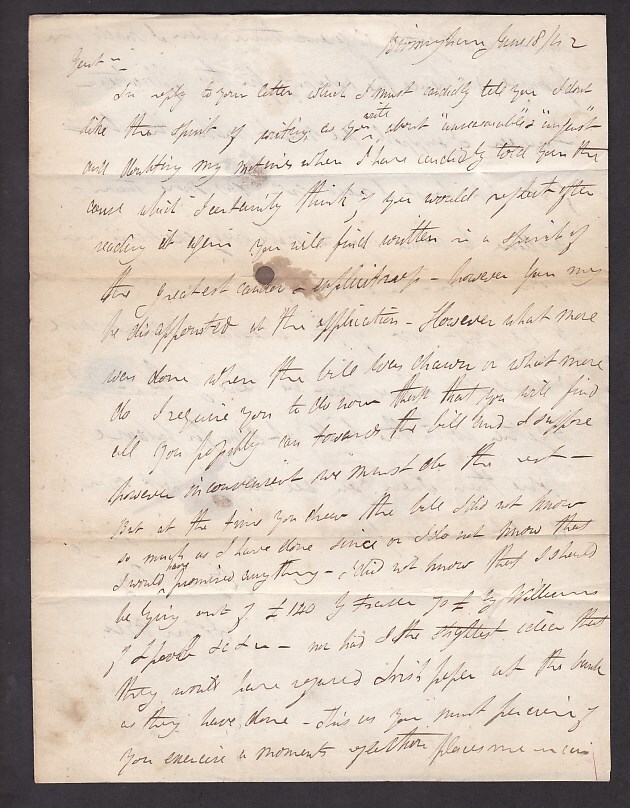 Birmingham June 18/42
Gent n
In reply to your letter which I must candidly tell you I dont
like the spirit of writing as you write about "unreasonable" & "unjust"
and doubting my motives when I have candidly told you the
cause which I certainly think if you would reflect after
reading it again you will find written in a spirit of
the greatest candor & explicitness - however you may
be disappointed at the application - However what more
was done when the bill was drawn or what more
do I require you to do now than that you will find
all you possibly can towards the bill and I suppose
however inconvenient we must do the rest -
But at the time you drew the bill I did not know
so much as I have done since or I do not know that
I would have promised anything - I did not know that I should
be lying out of £140 by Fraser 70£ by Williams
of &c &c - nor had I the slightest idea that
they would have refused Irish paper at the bank
as they have done - This as you must perceive if
you exercise a moments reflection places me in